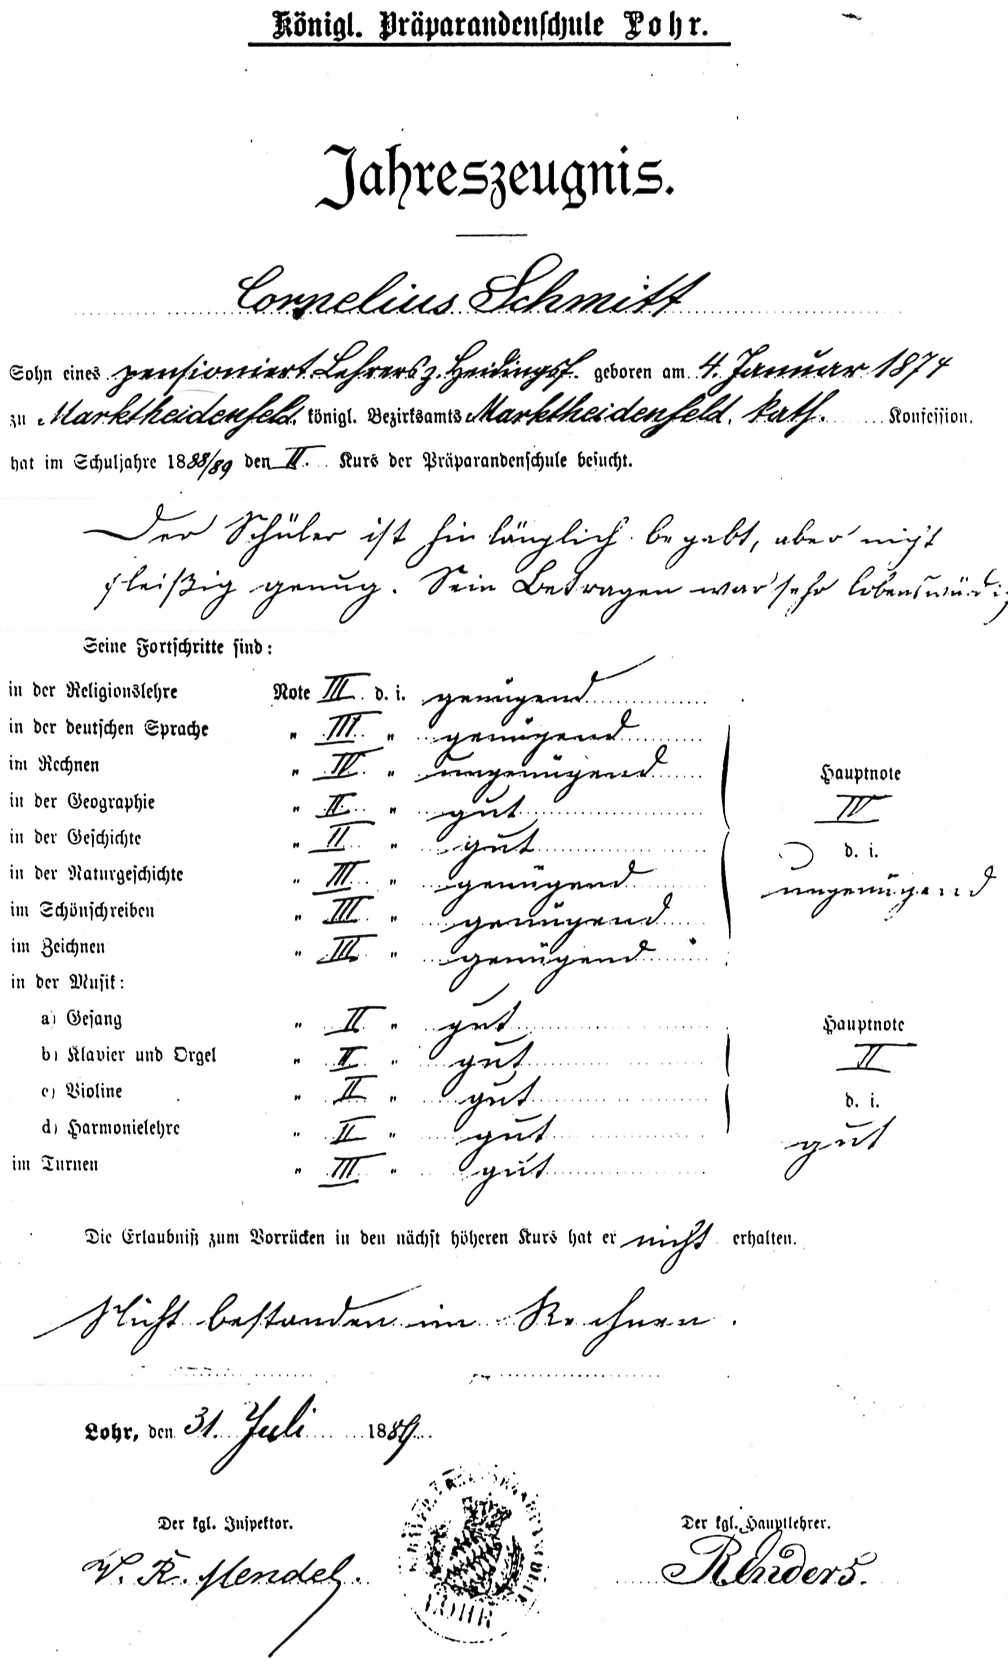 Königl. Präparandenschule Lohr.
Jahreszeugnis.
Cornelius Schmitt
Sohn eines pensioniert. Lehrers z. Heidingsf. geboren am 4. Januar 1874
zu Marktheidenfeld, königl. Bezirksamts Marktheidenfeld, kath. Konfession.
hat im Schuljahre 1888/89 den II. Kurs der Präparandenschule besucht.
Der Schüler ist hinlänglich begabt, aber nicht
fleißig genug. Sein Betragen war sehr lobenswürdig
Seine Fortschritte sind:
in der Religionslehre Note III d. i. genügend
in der deutschen Sprache " III " genügend
im Rechnen " IV " ungenügend
in der Geographie " II " gut
in der Geschichte " II " gut
in der Naturgeschichte " III " genügend
im Schönschreiben " III " genügend
im Zeichnen " III " genügend
Hauptnote
IV
d. i.
ungenügend
in der Musik:
a) Gesang " II " gut
b) Klavier und Orgel " II " gut
c) Violine " II " gut
d) Harmonielehre " II " gut
Hauptnote
II
d. i.
gut
im Turnen " III " gut
Die Erlaubniß zum Vorrücken in den nächst höheren Kurs hat er nicht erhalten.
Nicht bestanden im Rechnen.
Lohr, den 31. Juli 1889.
Der kgl. Inspektor.
Der kgl. Hauptlehrer.
LOHR